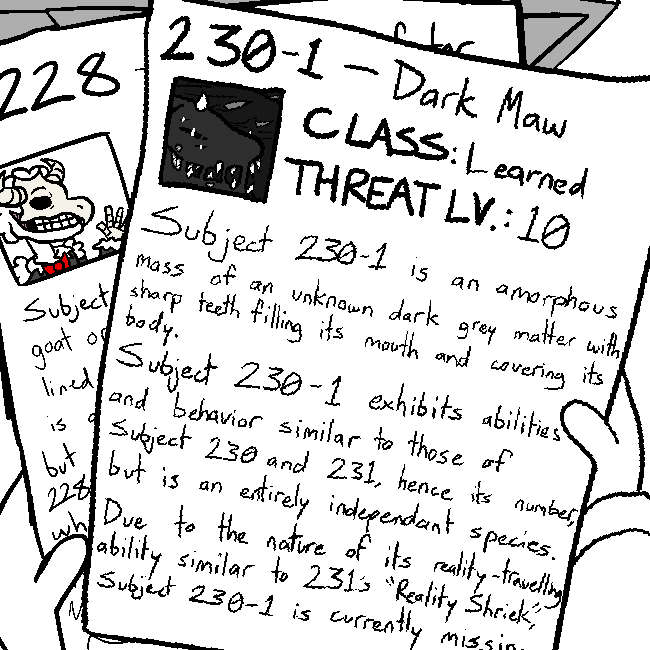 228
230-1 – Dark Maw
CLASS: Learned
THREAT LV.: 10
Subject 230-1 is an amorphous
mass of an unknown dark grey matter with
sharp teeth filling its mouth and covering its
body.
Subject 230-1 exhibits abilities
and behavior similar to those of
Subject 230 and 231, hence its number,
but is an entirely independant species.
Due to the nature of its reality-travelling
ability similar to 231s "Reality Shriek,"
Subject 230-1 is currently
Subject
goat
lined
is
but
228